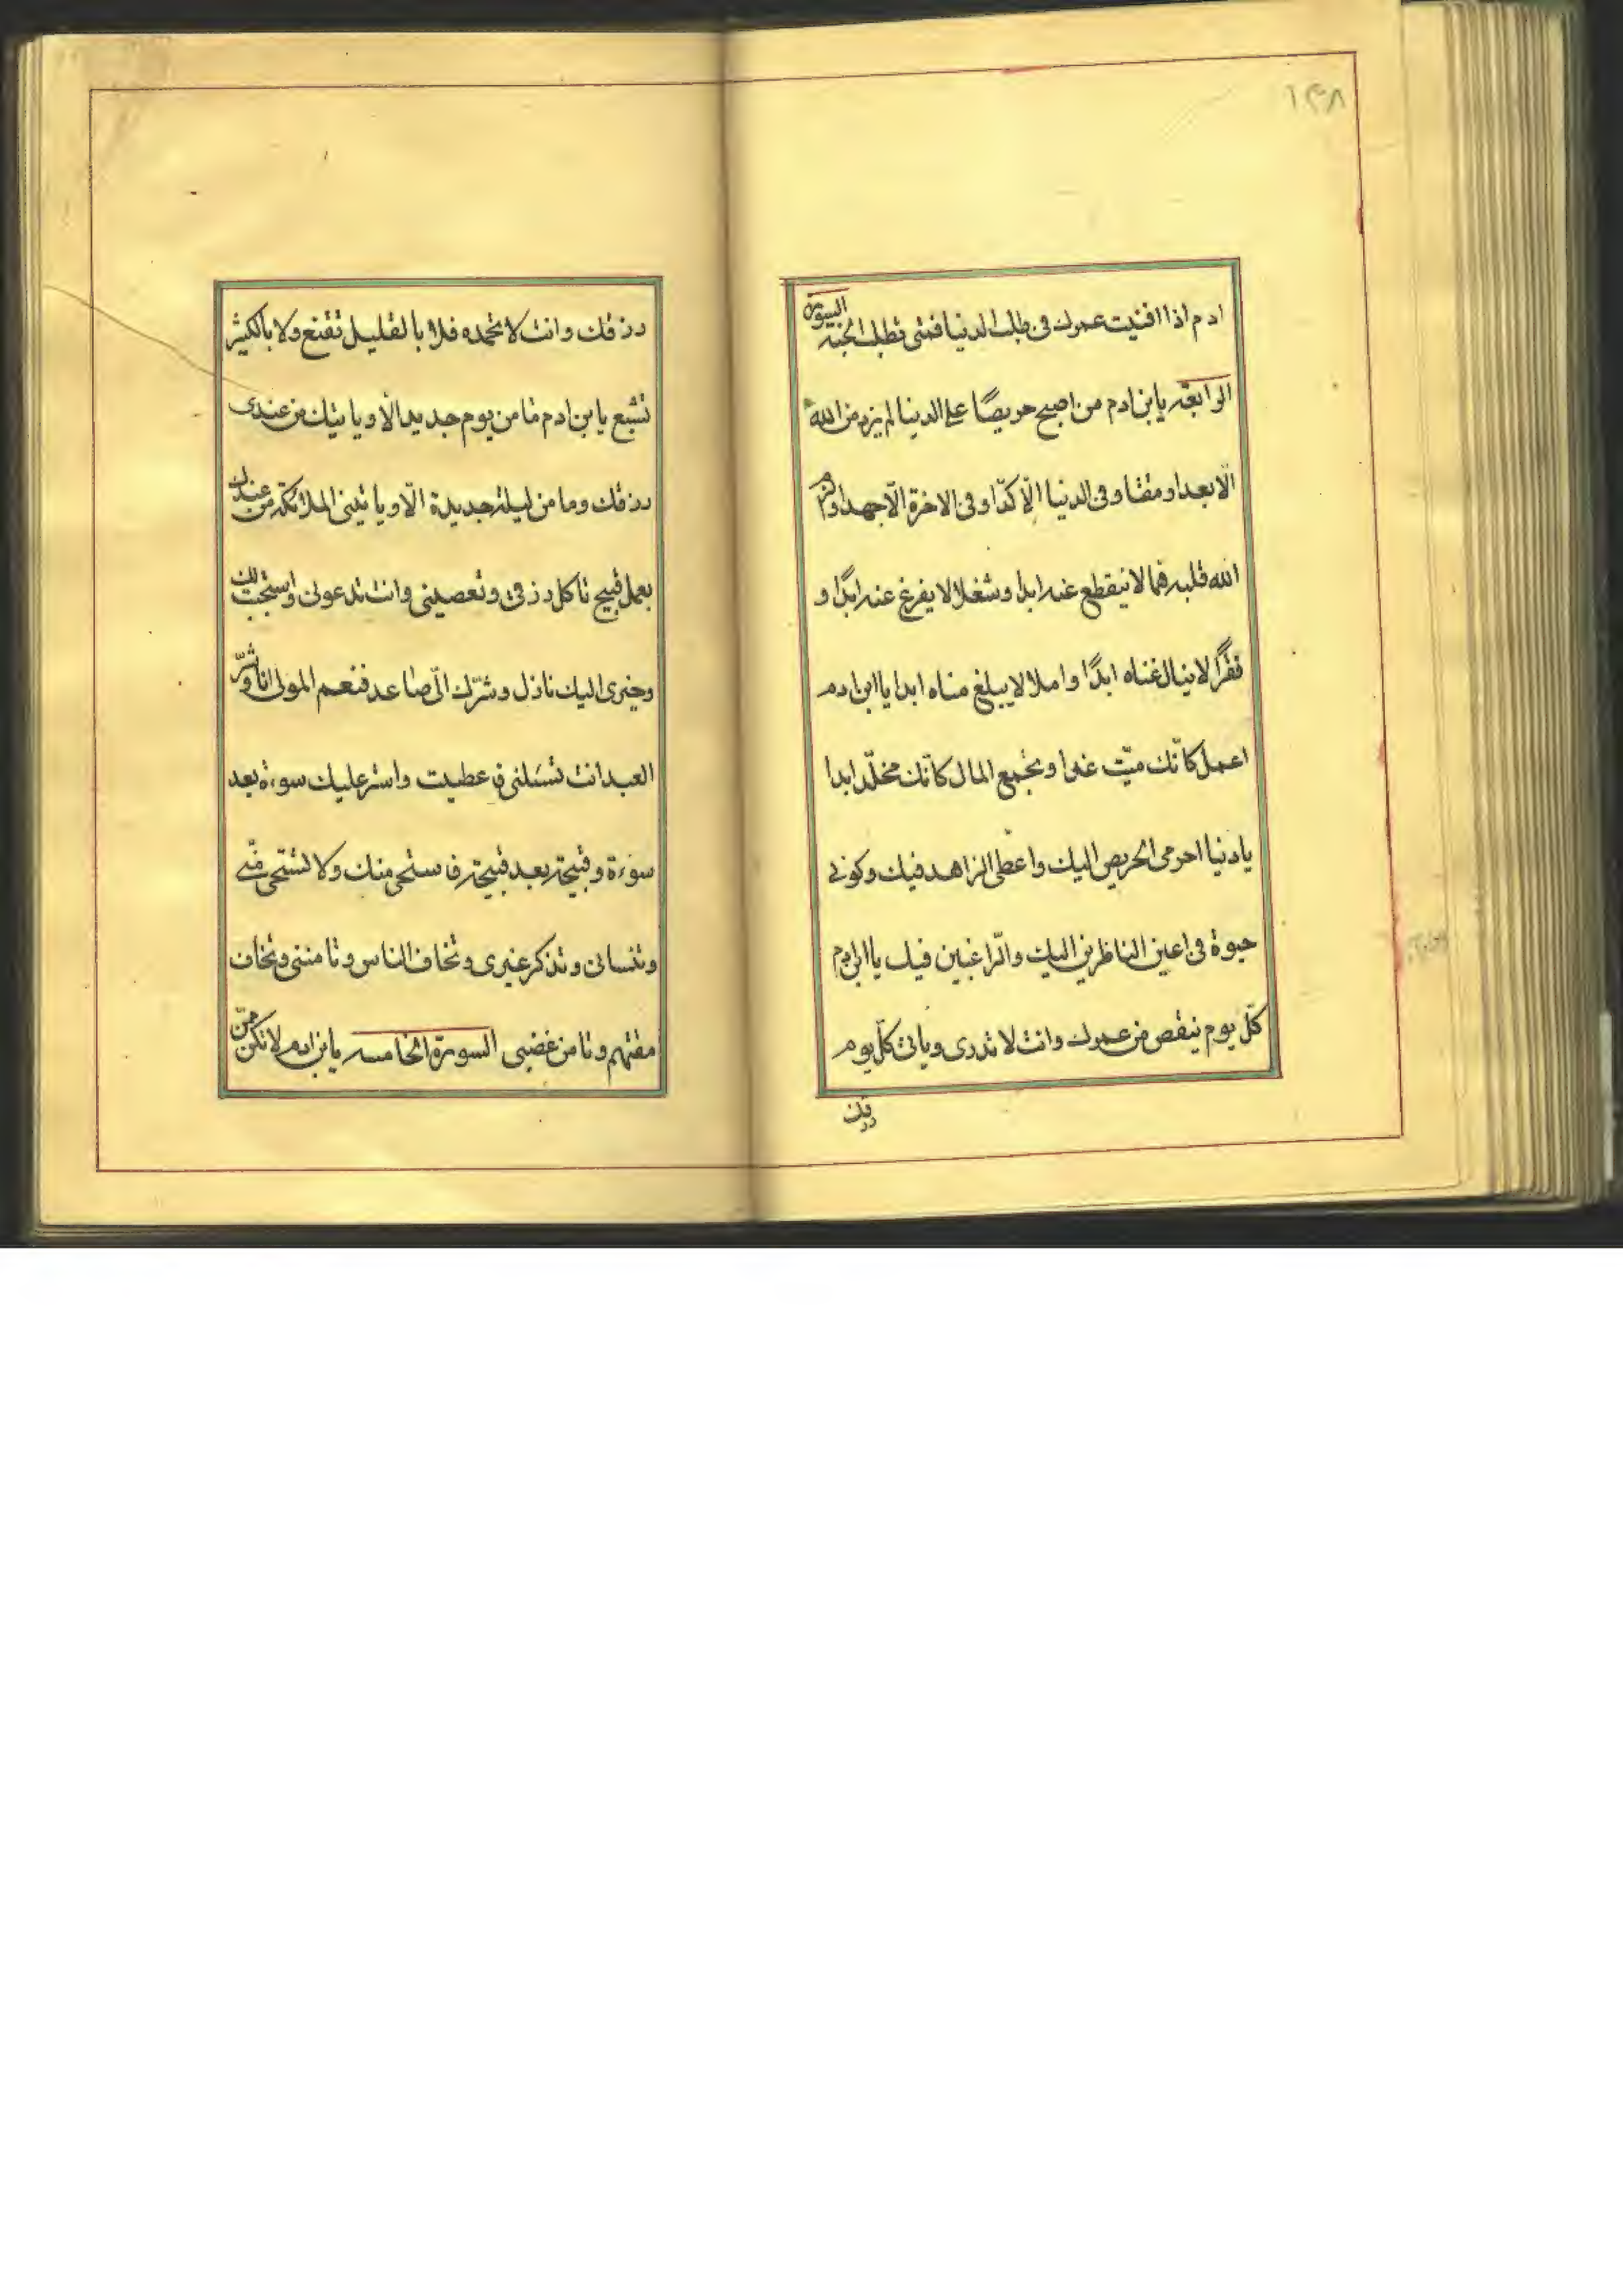 ۱۴۸
ادم اذا افنيت عمرك فى طلب الدنيا فمتى تطلب الجنه السورة
الرابعه يابن ادم من اصبح حريصًا على الدنيا لم يزد من الله
الّا بعدا ومقتا وفى الدنيا الّا كدّا وفى الاخرة الّا جهدا والزم
الله قلبه همّا لا ينقطع عنه ابدا وشغلا لا يفرغ عنه ابدًا و
فقرًا لا ينال غناه ابدًا واملا لا يبلغ مناه ابدا ياابن ادم
اعمل كانّك ميّت غدا وتجمع المال كانّك مخلّد ابدا
يا دنيا احرمى الحريص اليك واعطى الزاهد فيك وكونى
حيوة فى اعين الناظرين اليك والرّاغبين فيك ياابن ادم
كلّ يوم ينقص من عمرك وانت لا تدرى وياتى كلّ يوم
رزقك
رزقك وانت لا تحمده فلا بالقليل تقنع ولا بالكثير
تشبع يابن ادم ما من يوم جديد الّا وياتيك من عندى
رزقك وما من ليلة جديدة الّا وياتينى الملائكة من عندك
بعمل قبيح تاكل رزقى وتعصينى وانت تدعونى واستجبت لك
وخيرى اليك نازل وشرّك الىّ صاعد فنعم المولى انا وشرّ
العبد انت تسئلنى فاعطيت واستر عليك سوءة بعد
سوءة وقبيحة بعد قبيحة فاستحى منك ولا تستحى منّى
وتنسانى وتذكر غيرى وتخاف الناس وتامننى وتخاف
مقتهم وتامن غضبى السورة الخامسه يابن ادم لا تكن ممّن